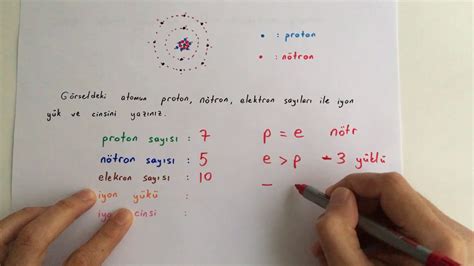 • proton
• nötron
Görseldeki atomun proton, nötron, elektron sayıları ile iyon
yük ve cinsini yazınız.
proton sayısı : 7
nötron sayısı : 5
elekron sayısı : 10
iyon yükü :
iyon cinsi :
p = e nötr
e > p -3 yüklü
–